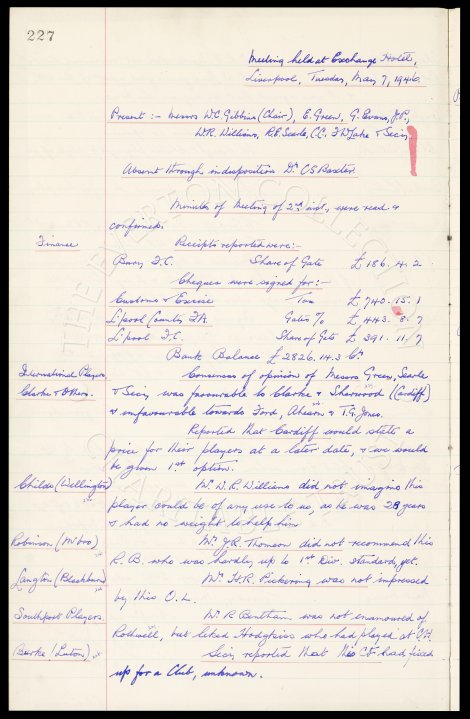 227
Meeting held at Exchange Hotel,
Liverpool, Tuesday, May 7, 1946.
Present :- Messrs W.C. Gibbins (Chair), E. Green, G. Evans, J.P.,
W.R. Williams, R.E. Searle, & Secy.
Absent through indisposition Dr. C.S. Baxter.
Minutes of Meeting of 2nd inst., were read &
confirmed.
Finance
Receipts reported were:-
Bury F.C. Share of Gate £ 186. 4. 2
Cheques were signed for:-
Customs & Excise Tax £ 740. 15. 1
L'pool County F.A. Gates % £ 443. 8. 7
L'pool F.C. Share of Gate £ 391. 11. 7
Bank Balance £ 2826. 14. 3 Cr.
International Players
Clarke & Others.
Consensus of opinion of Messrs Green, Searle
& Secy. was favourable to Clarke & Sherwood (Cardiff)
& unfavourable towards Ford, Ahearn & T.G. Jones.
Reported that Cardiff would state a
price for their players at a later date, & we would
be given 1st option.
Childs (Wellington)
Mr. W.R. Williams did not imagine this
player would be of any use to us, as he was 28 years
& had no weight to help him
Robinson
Mr. J.R. Thomson did not recommend this
R.B. who was hardly up to 1st Div. standard, yet.
Langton (Blackburn)
Mr. H.R. Pickering was not impressed
by this O.L.
Southport Players.
Mr. R. Bentham was not enamoured of
Rothwell, but liked Hodgkiss who had played at C.H.
Burke (Luton)
Secy. reported that this CF had fixed
up for a Club, unknown.
THE EVERTON COLLECTION